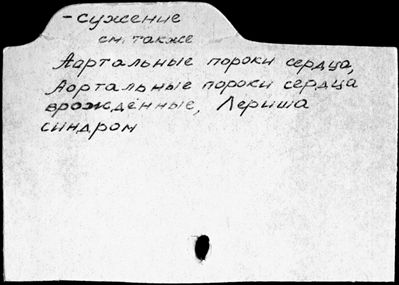 - Сужение
см. также
Аартальные пороки сердца,
Аортальные пороки сердца
врождённые, Лериша
синдром